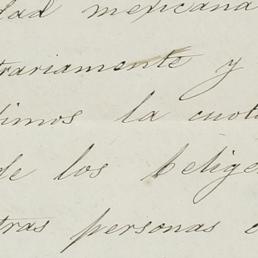 dad mexicana
trariamente y
timos la cuota
de los belige
tras personas e